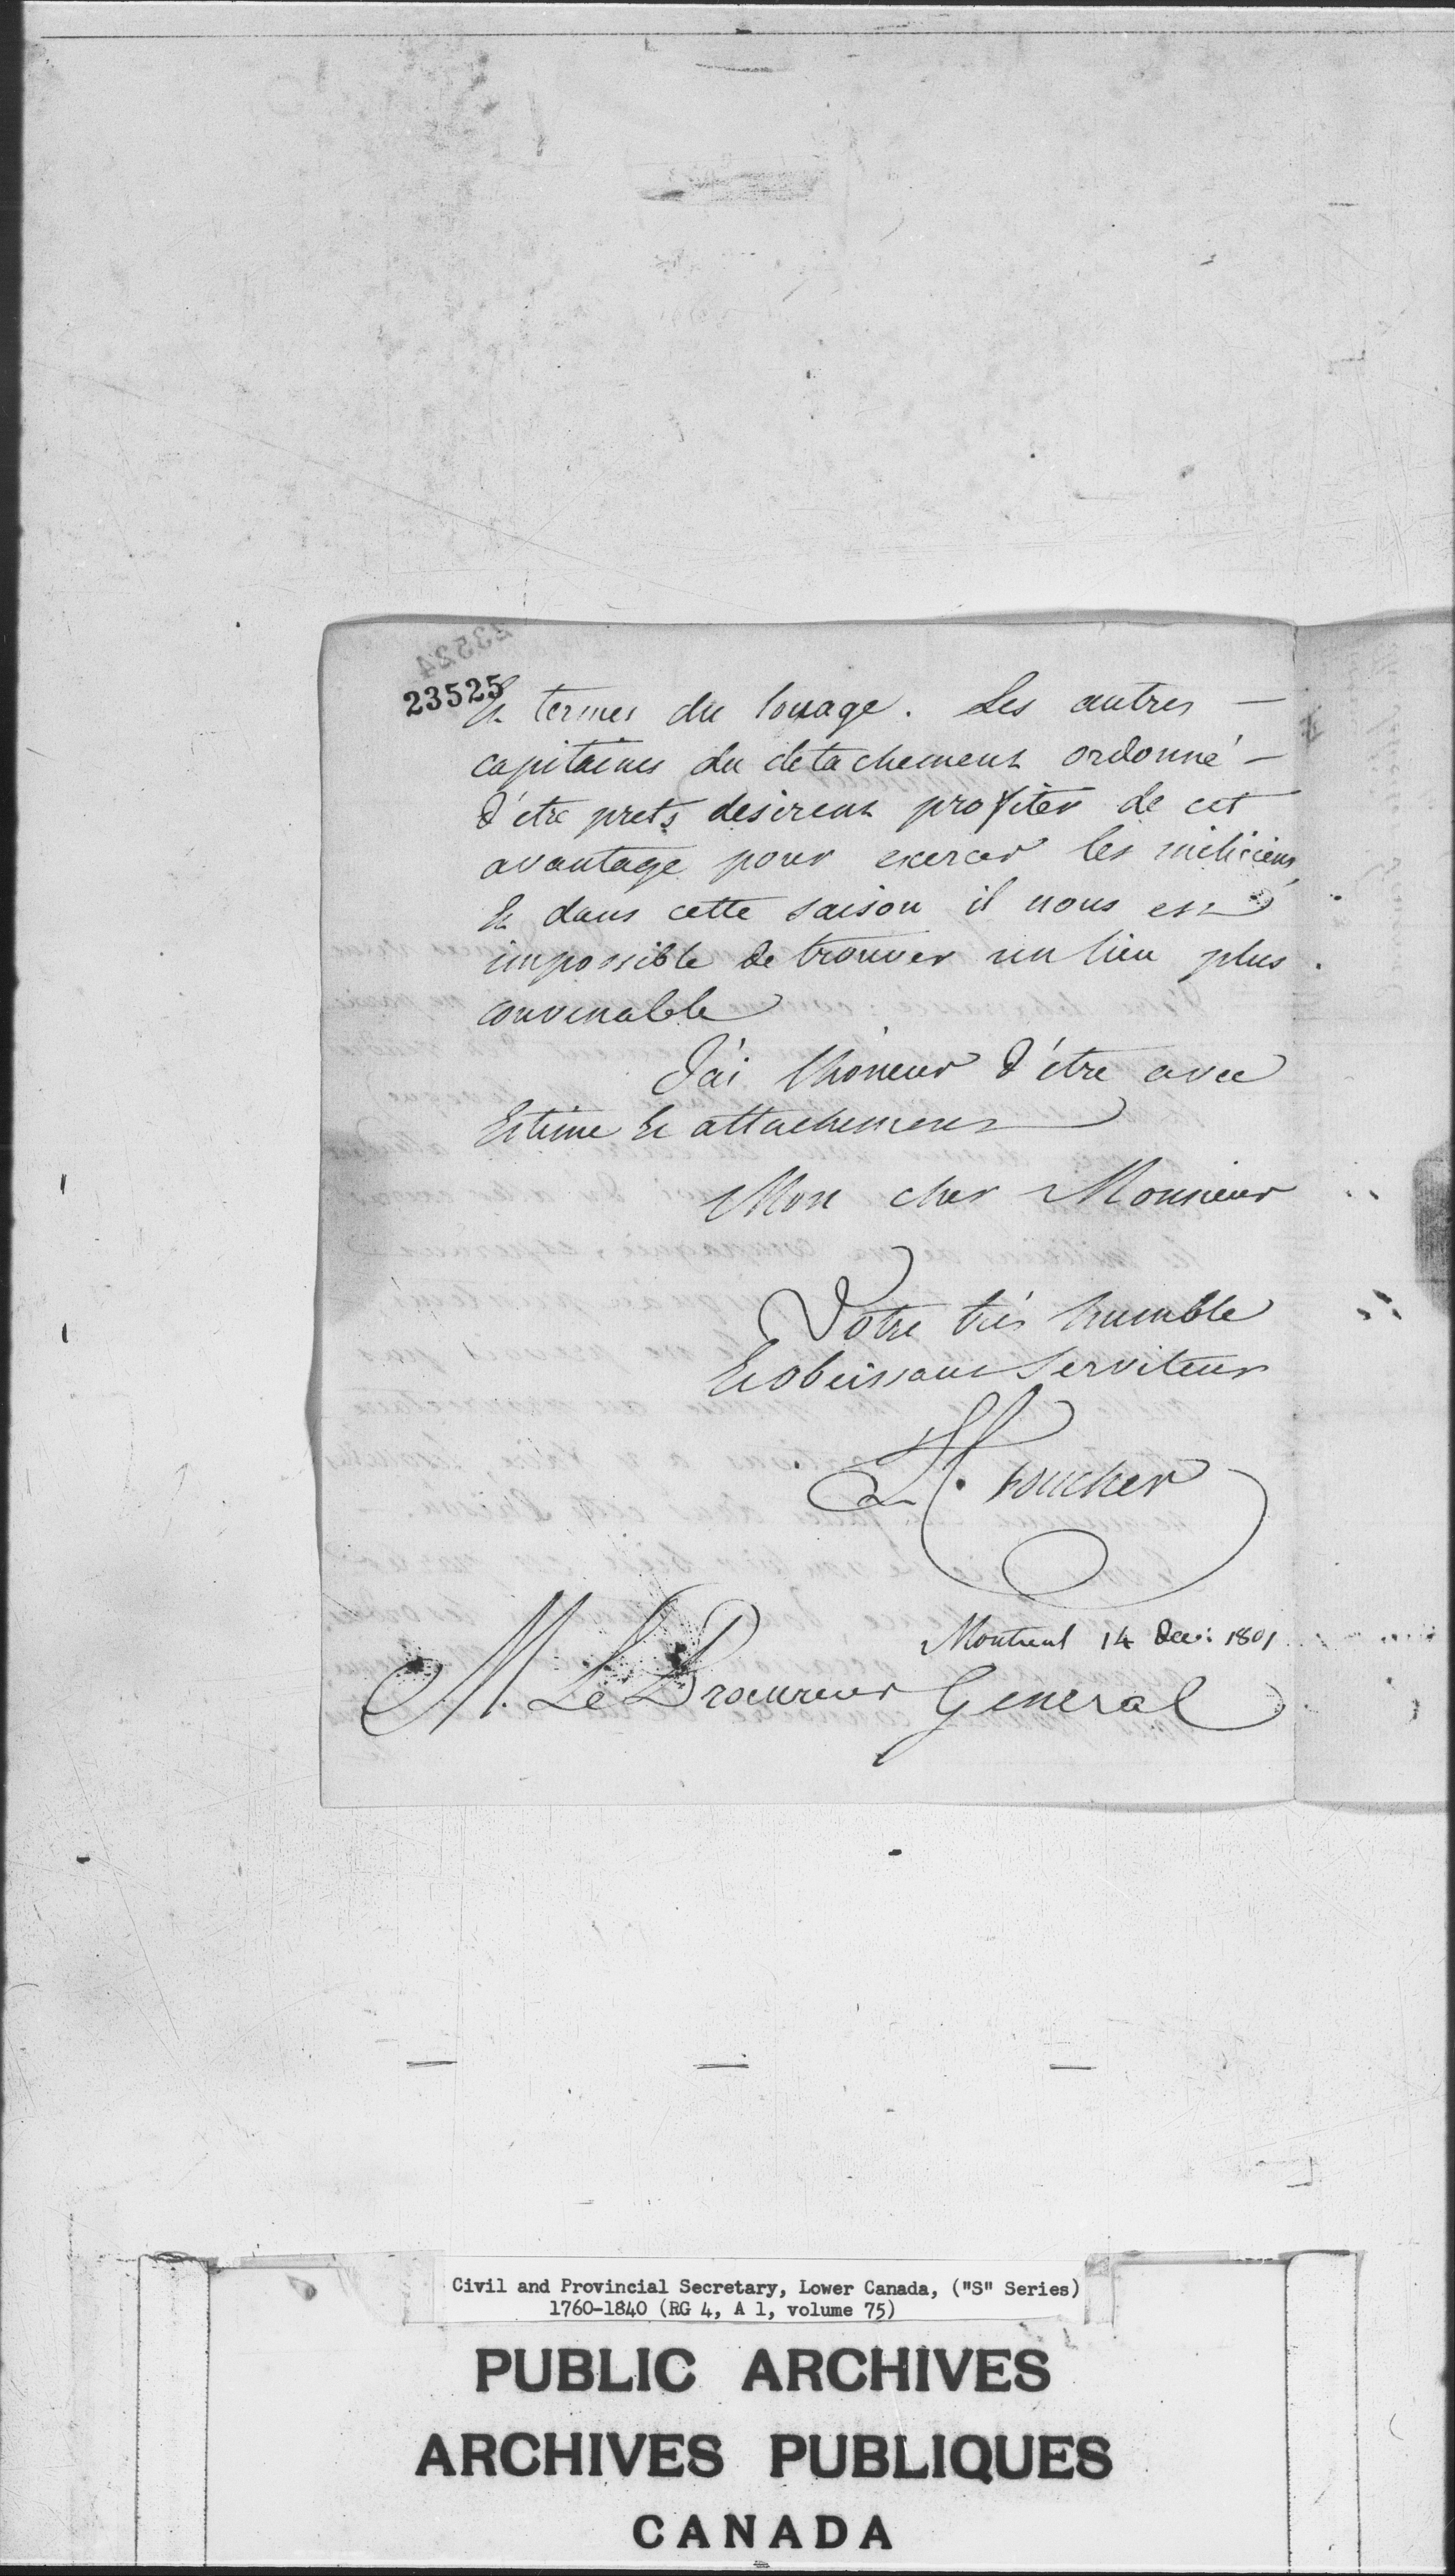 23524
23525
& termes du louage. Les autres —
capitaines du detachement ordonné —
d'etre prets desirent profiter de cet
avantage pour exercer les miliciens,
& dans cette saison il nous est
impossible de trouver un lieu plus
convenable
J'ai lhoneur d'etre avec
Estime & attachement
Mon cher Monsieur
Votre très humble
& obeissant Serviteur
L. C. Foucher
Montreal 14 Dec: 1801
M. Le Procureur General
Civil and Provincial Secretary, Lower Canada, ("S" Series)
1760-1840 (RG 4, A 1, volume 75)
PUBLIC ARCHIVES
ARCHIVES PUBLIQUES
CANADA